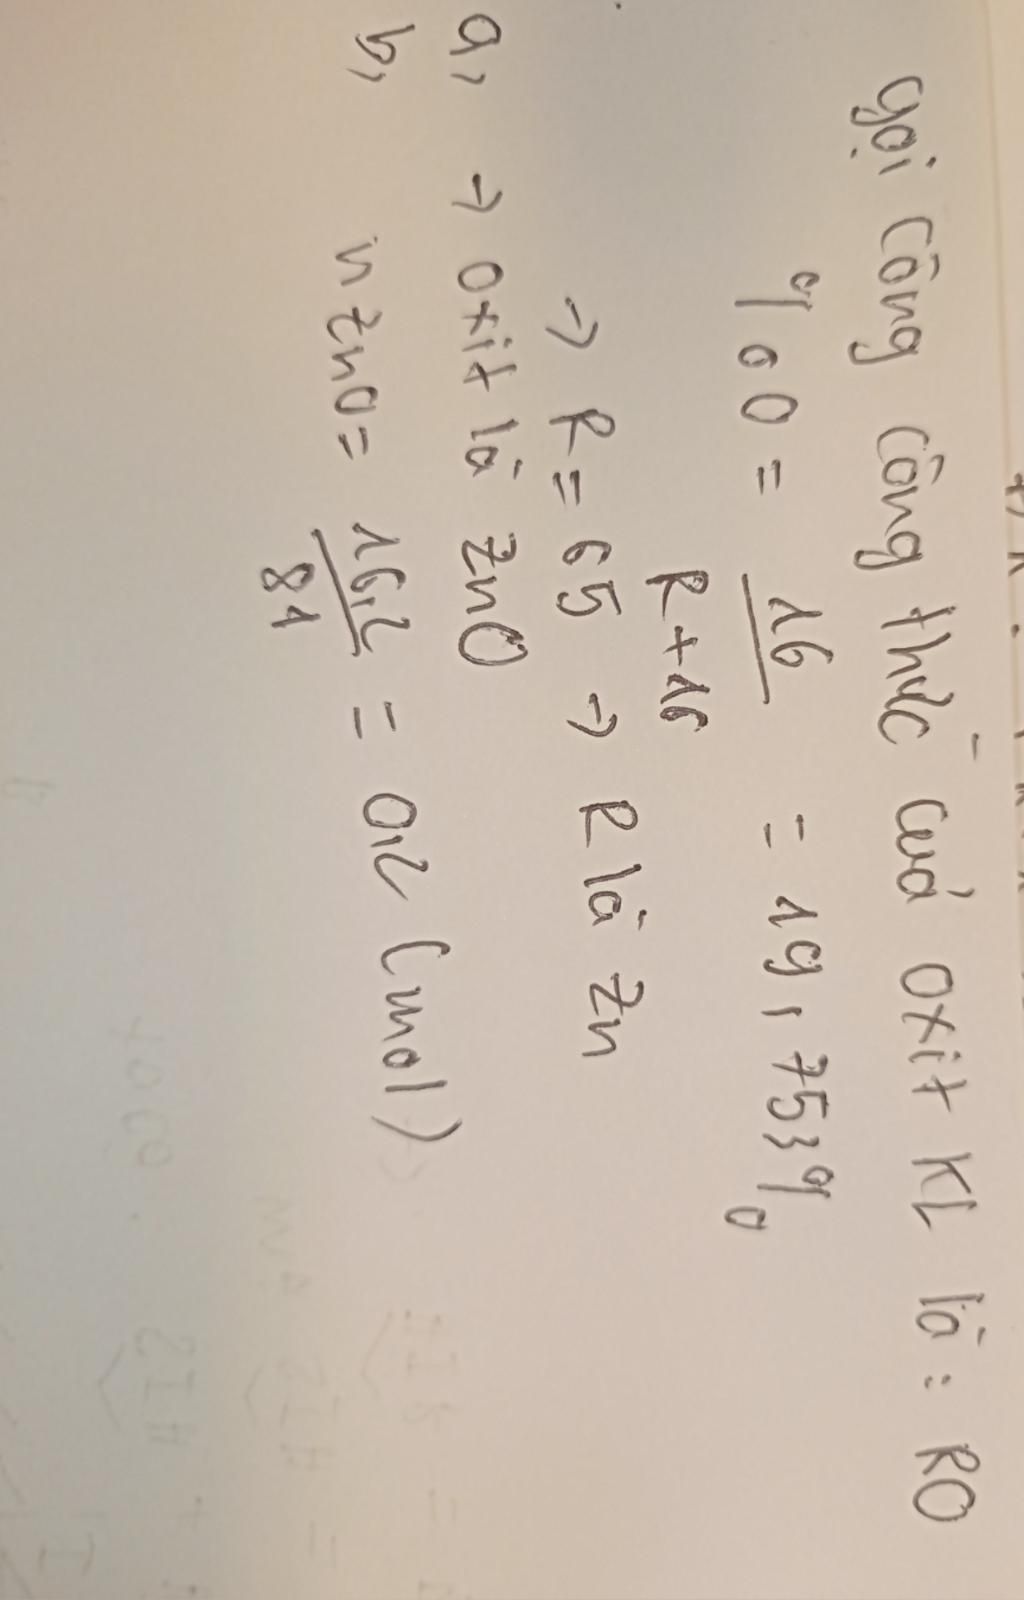 gọi công công thức của oxit KL là: RO
%O = 16 = 19,753%
R+16
→ R = 65 → R là Zn
a, → oxit là ZnO
b, nZnO = 16,2 = 0,2 (mol)
81